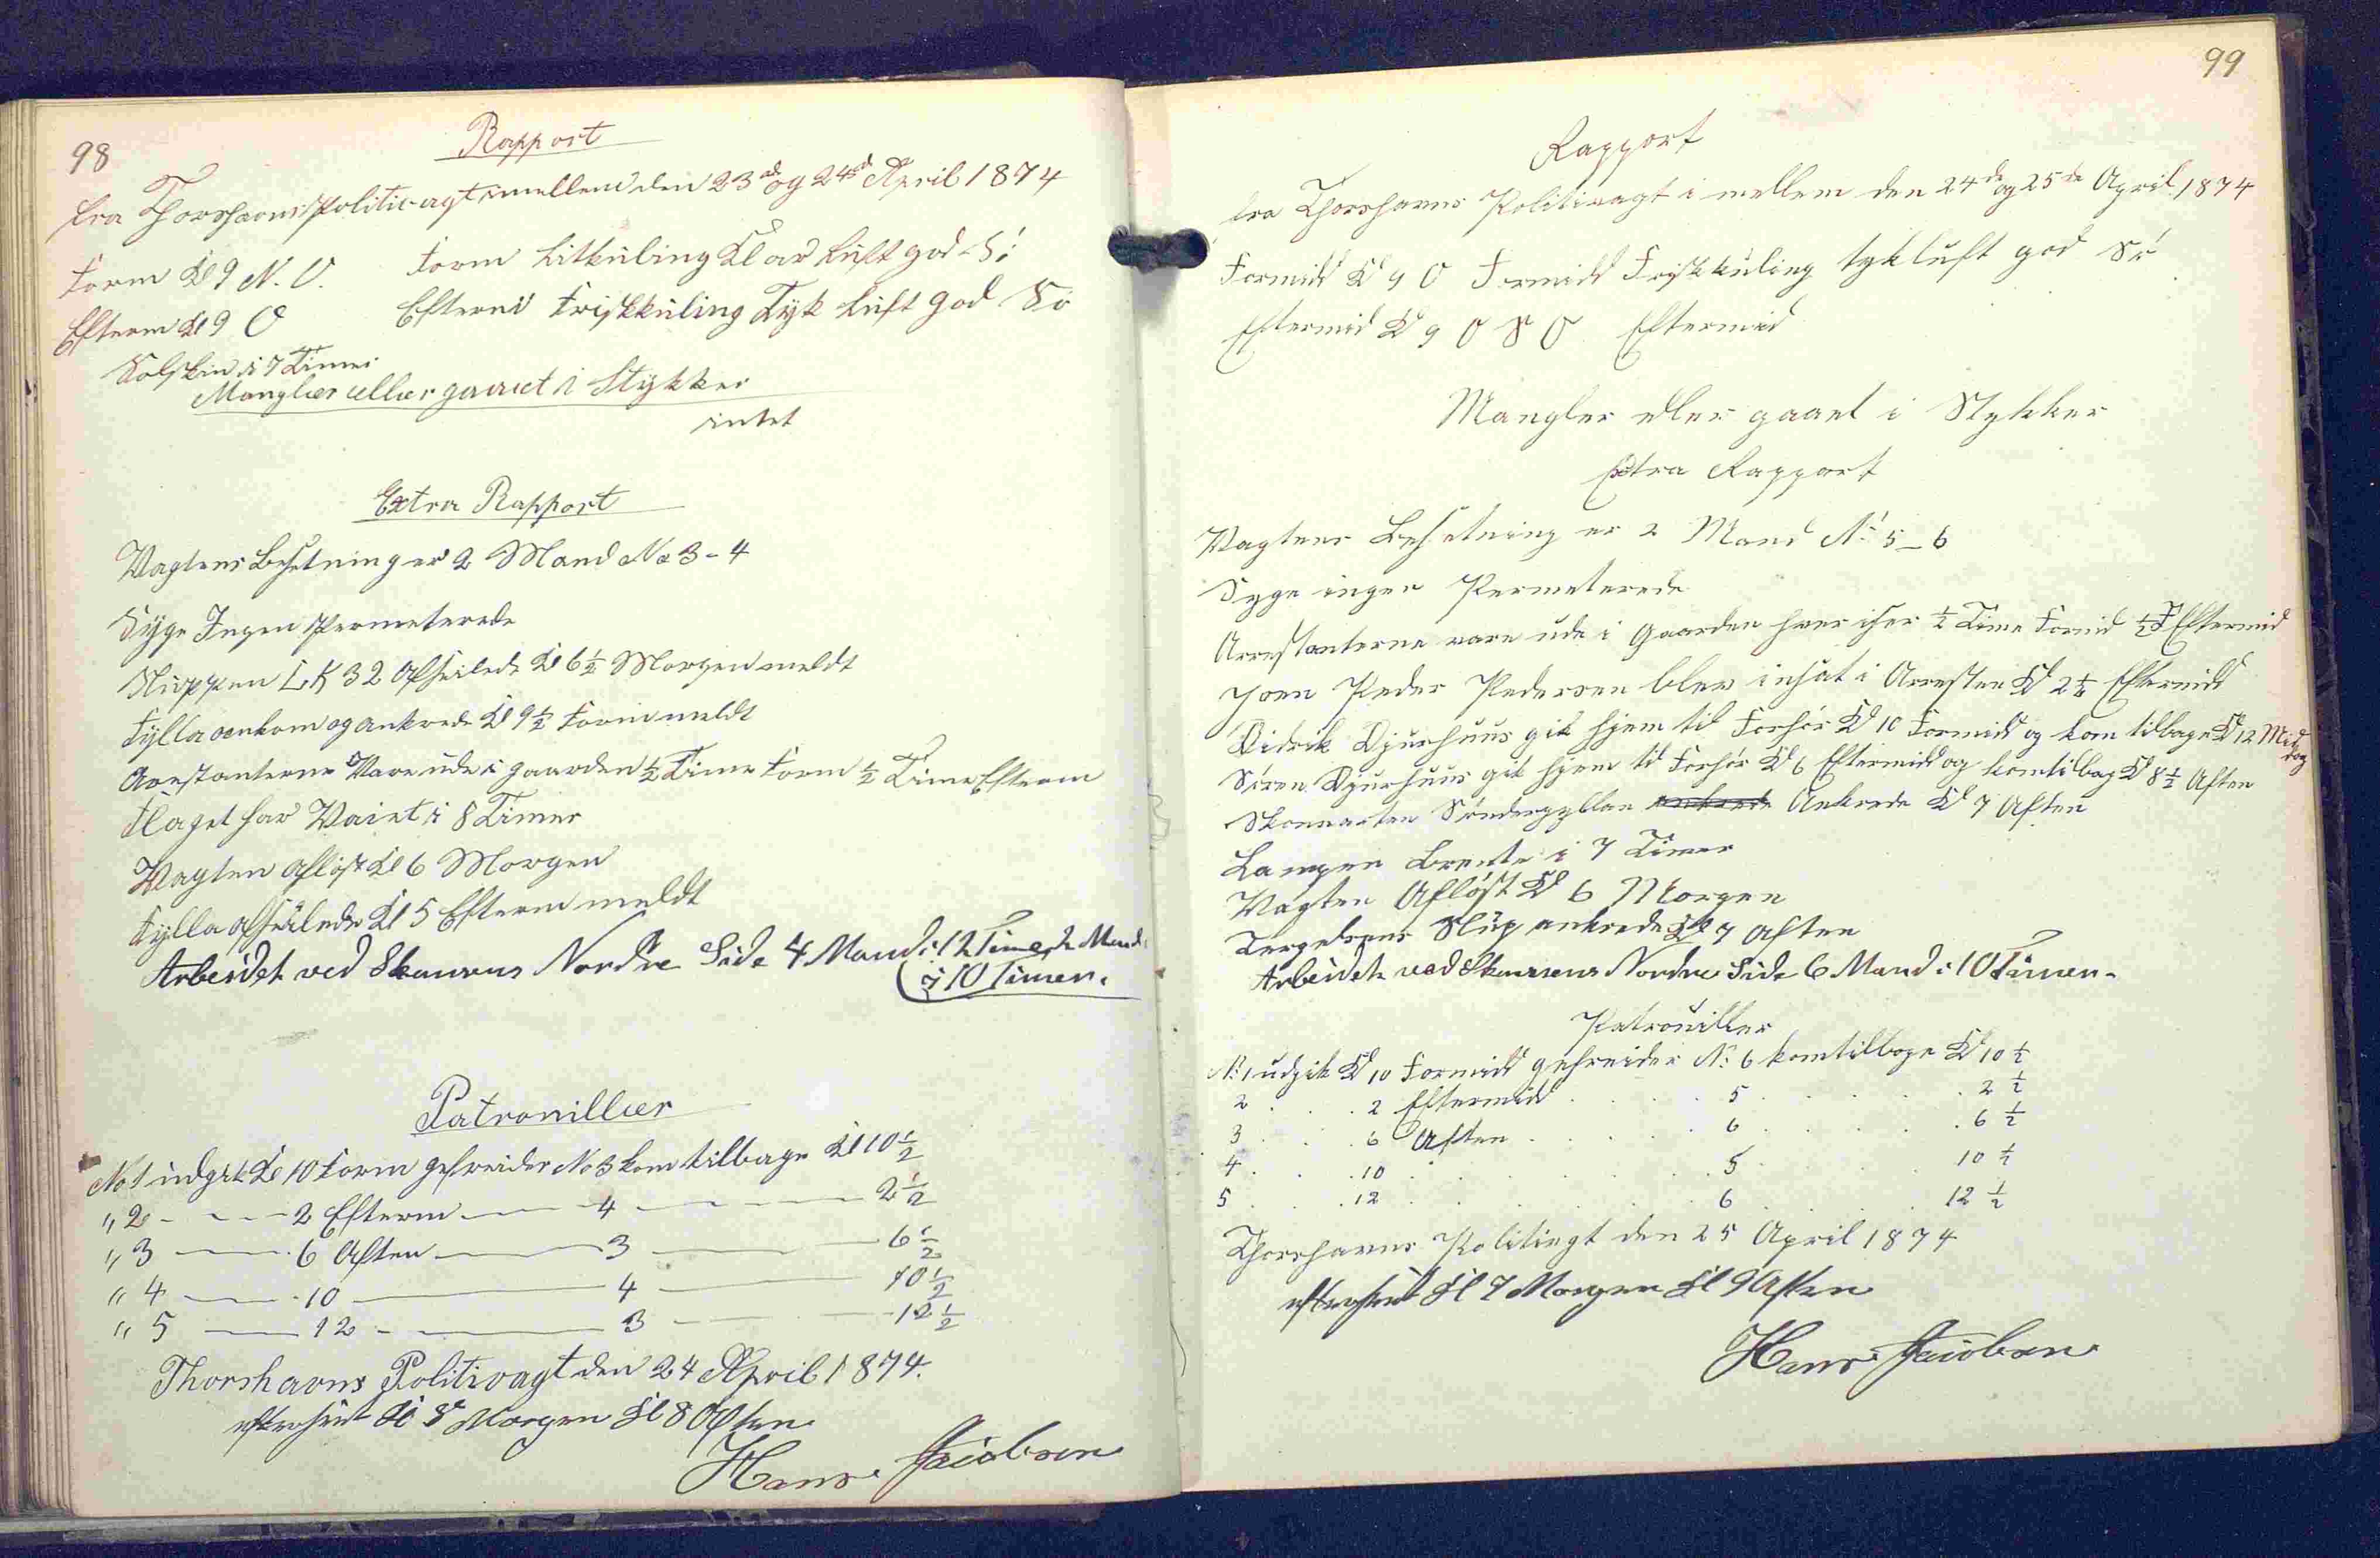 98
Rapport
fra Thorshavns Politivagt imellem den 23de og 24de April 1874
Form Kl 9 N. O. Form Litkuling Klar Luft god Sö
Efterm Kl 9 O Efterm Friskkuling Tyk Luft god Sö
Solskin i 7 Timer
Mangler eller gaaet i Stykker
intet
Extra Rapport
Vagtens Besetning er 2 Mand No 3-4
Syge Ingen Permeterede
Sluppen LK 32 afseilede Kl 6 1/2 Morgen meldt
Fylla ankom og ankrede Kl 9 1/2 Form meldt
Arestanterne Vare ude i gaarden 1/2 Time Form 1/2 Time Efterm
Flaget har Vaiet i 8 Timer
Vagten aflöst Kl 6 Morgen
Fylla afseilede Kl 5 Efterm meldt
Arbeidet ved Skansens Nordre Side 4 Mand i 12 Timer, 2 Mand
i 10 Timer.
Patrouiller
No 1 udgik Kl 10 Form gefreider No 3 kom tilbage Kl 10 1/2
" 2 - - - 2 Efterm - 4 - 2 1/2
" 3 - 6 Aften - 3 - 6 1/2
" 4 - 10 - 4 - 10 1/2
" 5 - 12 - 3 - 12 1/2
Thorshavns Politivagt den 24 April 1874.
efterseet Kl 8 Morgen Kl 8 Aften
Hans Jacobsen
99
Rapport
fra Thorshavns Politivagt i mellem den 24de og 25de April 1874
Formidd Kl 9 O Formidd Friskkuling tykluft god Sö
Eftermid Kl 9 O S O Eftermid
Mangler eller gaaet i Stykker
Extra Rapport
Vagtens Besetning er 2 Mand No 5-6
Syge ingen Permeterede
Arrestanterne vare ude i Gaarden hver iser 1/2 Time Formid 1/2 T Eftermid
Joen Peder Pedersen blev insat i Arresten Kl 2 1/4 Eftermidd
Didrik Djurhuus gik hjem til Forhör Kl 10 Formidd og kom tilbage Kl 12 Mid
dag
Sören Djurhuus gik hjem til Forhör Kl 6 Eftermidd og komtilbag Kl 8 1/2 Aften
Skonnarten ankrede Ankrede Kl 7 Aften
Lampen Brente i 7 Timer
Vagten Aflöst Kl 6 Morgen
Slup ankrede Kl 7 Aften
Arbeidet ved Skansens Nordre Side 6 Mand i 10 Timer.
Patrouiller
No 1 udgik Kl 10 Formidd gefreider No 6 komtilbage Kl 10 1/2
2 . . . 2 Eftermidd . . . 5 . . . 2 1/2
3 . . . 6 Aften . . . 6 . . . 6 1/2
4 . . . 10 . . . 5 . . . 10 1/2
5 . . . 12 . . . 6 . . . 12 1/2
Thorshavns Politivgt den 25 April 1874
efterseet Kl 7 Morgen Kl 9 Aften
Hans Jacobsen